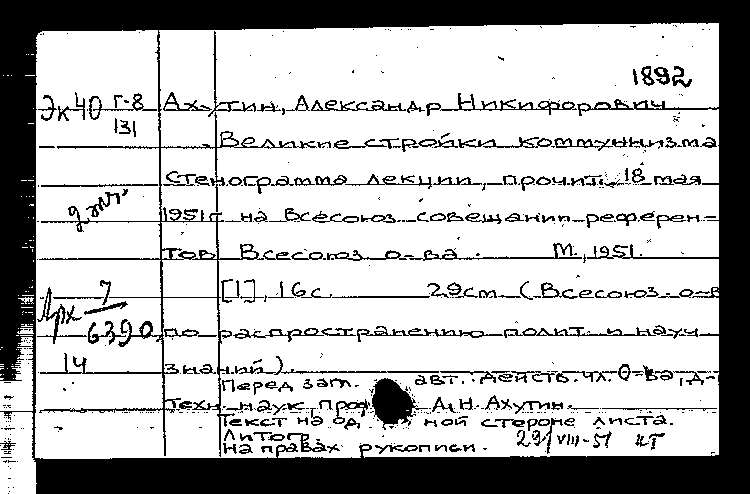 1892
Эк40 Г-8 Ахутин, Александр Никифорович
131
Великие стройки коммунизма
Стенограмма лекции, прочит. 18 мая
1951г на Всесоюз совещании референ-
2 экз.
тов Всесоюз о-ва. М., 1951.
[1], 16с. 29см. (Всесоюз. о-в
Арх 7
6390 по распространению полит. и науч
14
знаний).
Перед заг. авт.: действ. чл. О-ва, д-
техн наук, про А.Н. Ахутин.
Текст на од ной стороне листа.
Литогр
На правах рукописи. 29/VIII-51